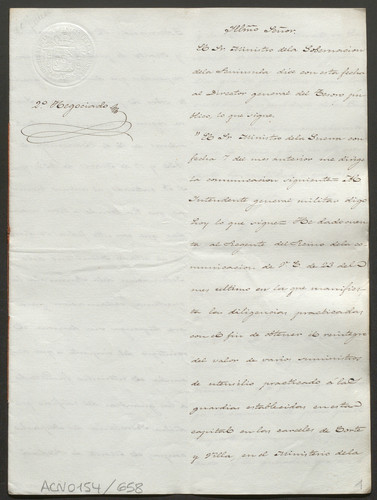 Ilmo Señor.
El Sr Ministro dela Gobernacion
dela Peninsula dice con esta fecha
al Director general del Tesoro pu-
blico, lo que sigue.
2º Negociado
"El Sr Ministro dela Guerra con
fecha 7 del mes anterior me dirige
la comunicacion siguiente = Al
Intendente general militar digo
hoy lo que sigue = He dado cuen-
ta al Regente del Reino dela co-
municacion de V. E. de 23 del
mes ultimo en la que manifies-
ta las diligencias practicadas
con el fin de obtener el reintegro
del valor de varios suministros
de utensilio practicado á las
guardias establecidas en esta
capital en las carceles de Corte
y Villa, en el Ministerio dela
ACN0154/658
1